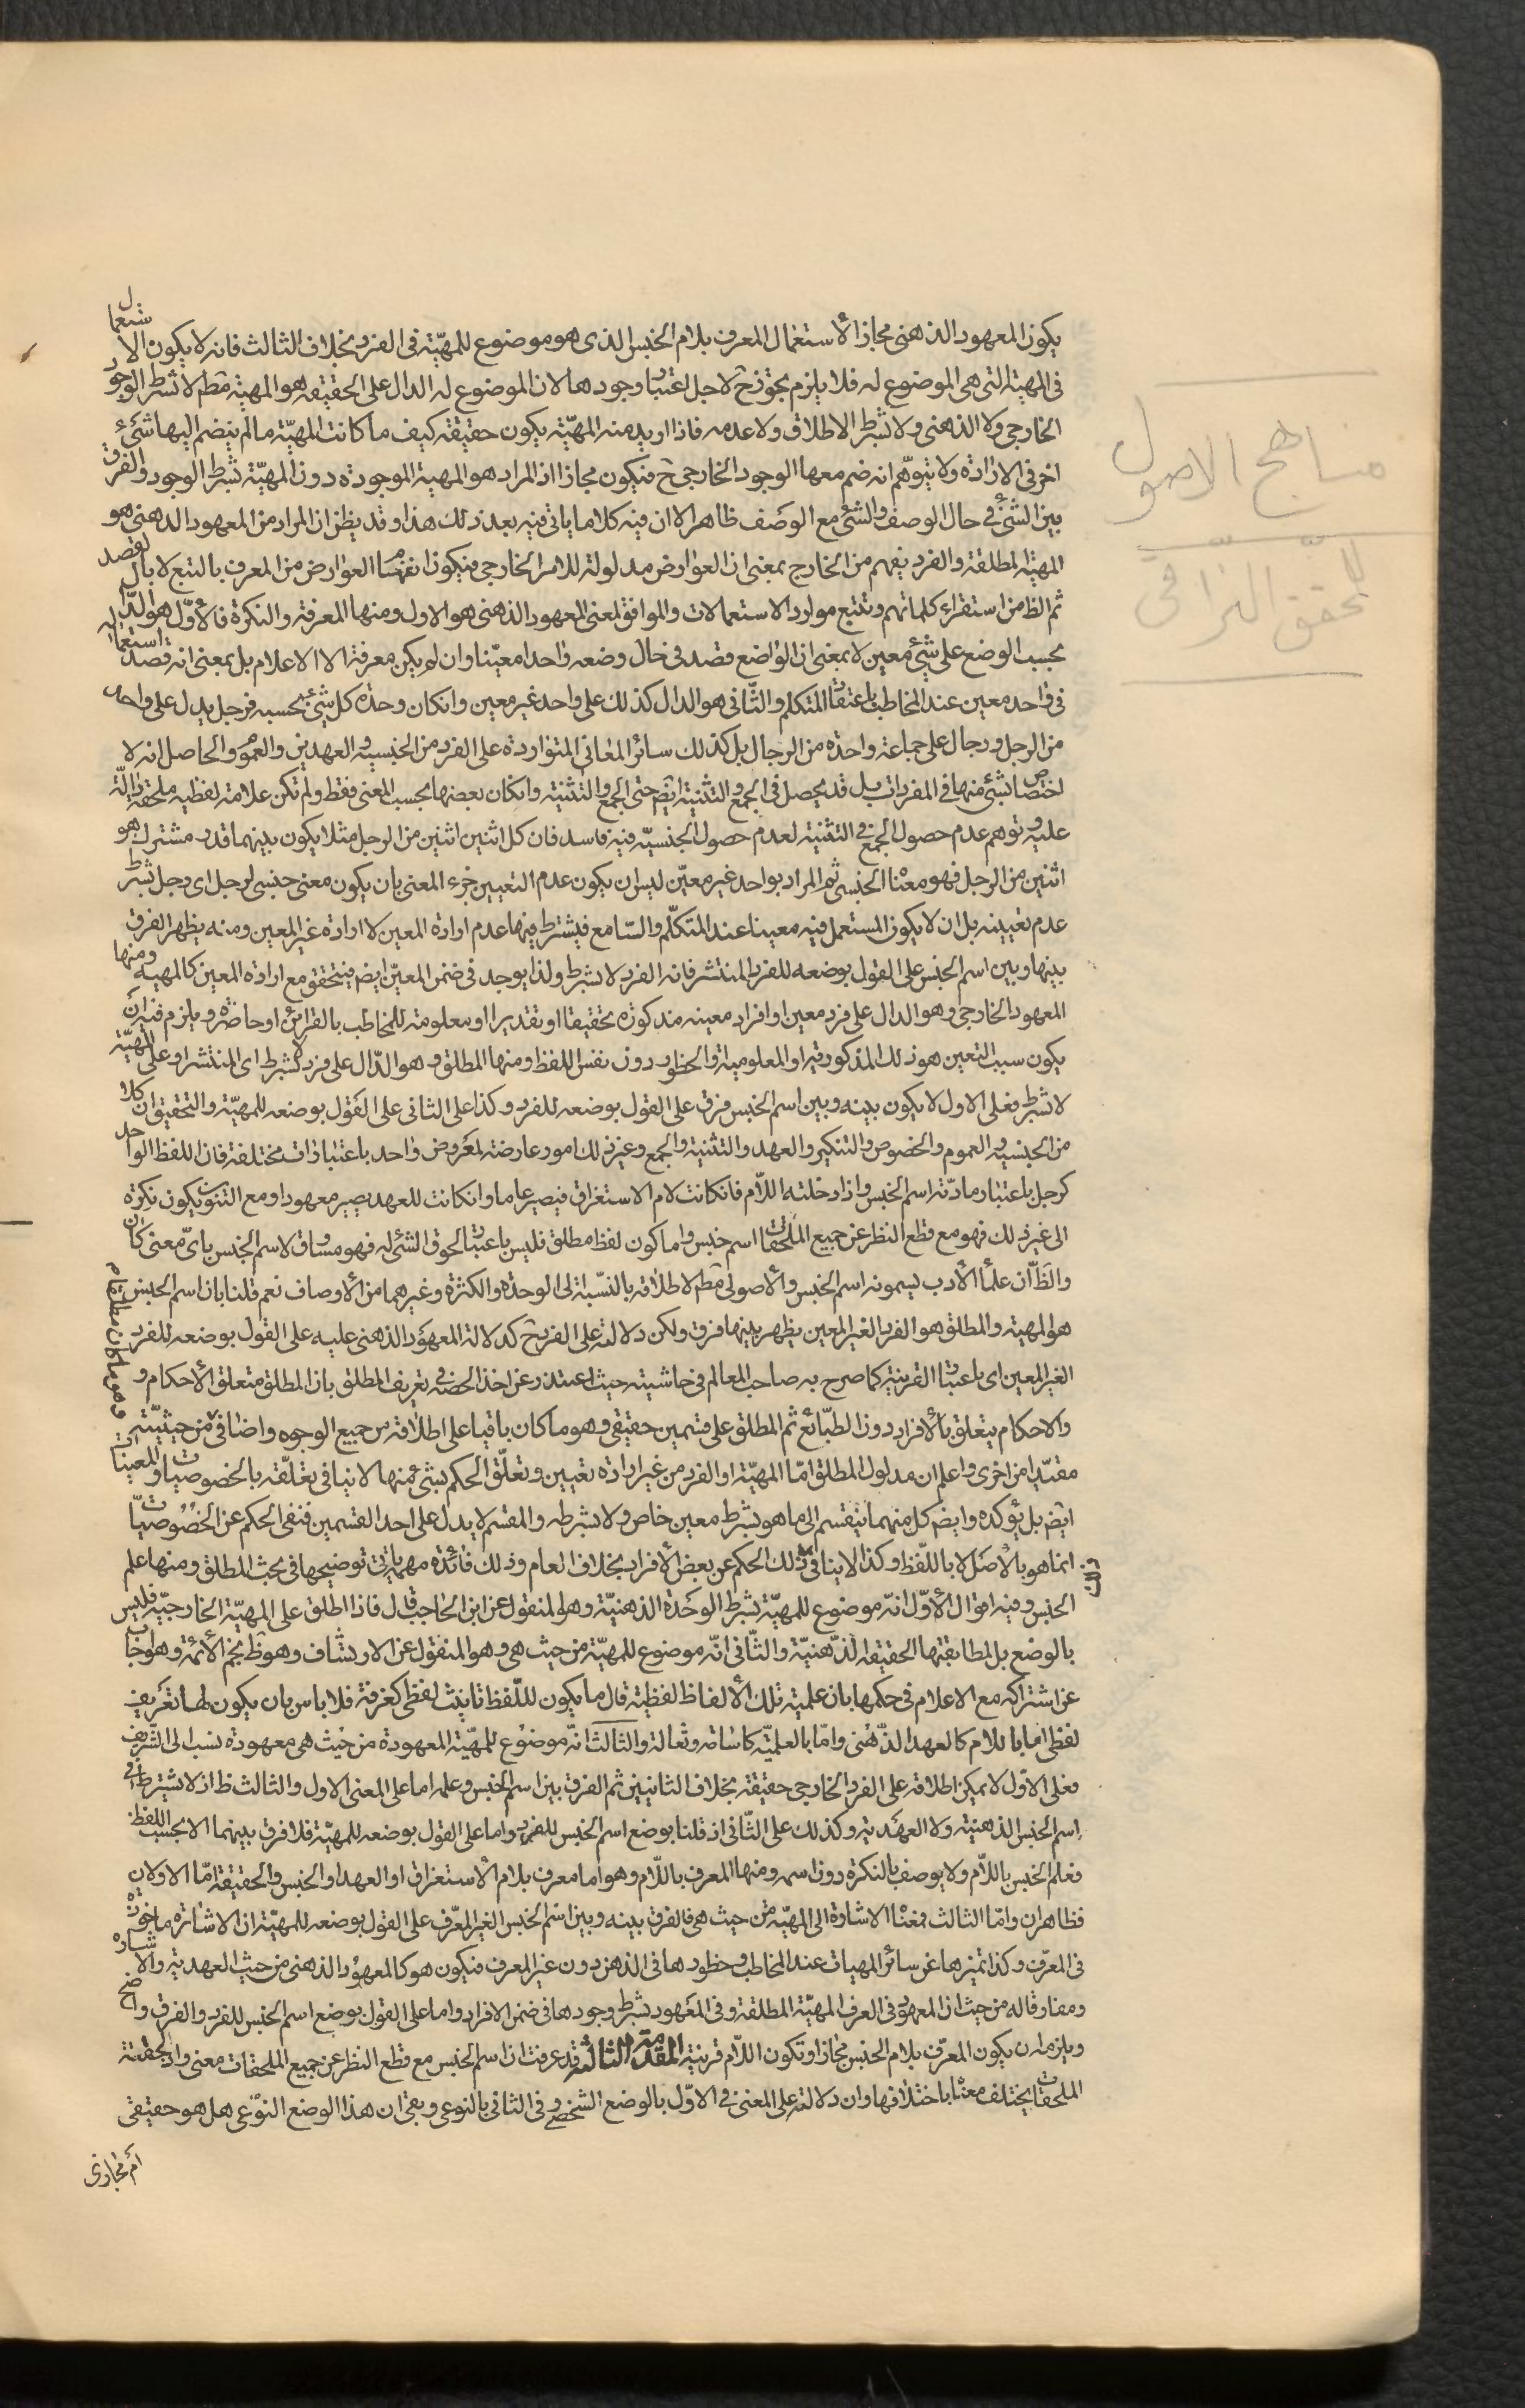 مناهج الاصول
للمحقق النراقی
يكون المعهود الذهنى مجازا لاستعمال المعرف بلام الجنس الذى هو موضوع للمهيّة فى الفرد بخلاف الثالث فانه لا يكون الاستعمال
فى المهية التى هى الموضوع له فلا يلزم تجوّز ح لاجل اعتبار وجودها لان الموضوع له الدال على الحقيقة هو المهية مط لا بشرط الوجود
الخارجى ولا الذهنى ولا بشرط الاطلاق ولا عدمه فاذا اريد منه المهيّة يكون حقيقة كيف ما كانت المهيّة ما لم ينضم اليها شئ
اخر فى الارادة ولا يتوهّم انه ضم معها الوجود الخارجى ح فيكون مجازا اذ المراد هو المهية الموجودة دون المهيّة بشرط الوجود والفرق
بين الشئ فى حال الوصف والشئ مع الوصف ظاهر الا ان فيه كلاما ياتى فيه بعد ذلك هذا وقد يظن ان المراد من المعهود الذهنى هو
المهية المطلقة والفرد يفهم من الخارج بمعنى ان العوارض مدلولة للامر الخارجى فيكون انفهام العوارض من المعرف بالتبع لا بالقصد
ثم الظ من استقراء كلماتهم وتتبع موارد الاستعمالات والموافق لمعنى المعهود الذهنى هو الاول ومنها المعرفة والنكرة فالاوّل هو الدّال
بحسب الوضع على شئ معين لا بمعنى ان الواضع قصد فى حال وضعه واحدا معيّنا وان لم يكن معرفة الا الاعلام بل بمعنى انه قصد استعماله
فى واحد معين عند المخاطب باعتقاد المتكلم والثّانى هو الدال كذلك على واحد غير معين وان كان وحدة كل شئ بحسبه فرجل يدل على واحد
من الرجل ورجال على جماعة واحدة من الرجال بل كذلك سائر المعانى المتواردة على الفرد من الجنسية والعهدين والعموم والحاصل انه لا
اختصاص لشئ منها فى المفردات بل قد يحصل فى الجمع والتثنية ايضا حتى الجمع والتثنية وان كان بعضها بحسب المعنى فقط ولم تكن علامة لفظية ملحقة دالّة
عليه وتوهم عدم حصول الجمع فى التثنية لعدم حصول الجنسيّة فيه فاسد فان كل اثنين اثنين من الرجل مثلا يكون بينهما قدر مشترك هو
اثنين من الرجل فهو معناه الجنسى ثم المراد بواحد غير معيّن ليس ان يكون عدم التعيين جزء المعنى بان يكون معنى جئنى لرجل اى رجل بشرط
عدم تعيينه بل ان لا يكون المستعمل فيه معينا عند المتكلّم والسّامع فيشترط فيها عدم ارادة المعين لا ارادة غير المعين ومنه يظهر الفرق
بينها وبين اسم الجنس على القول بوضعه للفرد المنتشر فانه الفرد لا بشرط ولذا يوجد فى ضمن المعيّن ايضا فيتحقق مع ارادة المعين كالمهية ومنها
المعهود الخارجى وهو الدال على فرد معين او افراد معينه مذكورة تحقيقا او تقديرا او معلومة للمخاطب بالقرائن او حاضرة ويلزم فيه ان
يكون سبب التعين هو ذلك المذكورية او المعلومية والحظور دون نفس اللفظ ومنها المطلق وهو الدّال على فرد لا بشرط اى المنتشر او على المهيّة
لا بشرط فعلى الاول لا يكون بينه وبين اسم الجنس فرق على القول بوضعه للفرد وكذا على الثانى على القول بوضعه للمهيّة والتحقيق ان كلا
من الجنسية والعموم والخصوص والتنكير والعهد والتثنية والجمع وغير ذلك امور عارضة لمعروض واحد باعتبارات مختلفة فان اللفظ الواحد
كرجل باعتبار مادّته اسم الجنس واذا دخلته اللّام فان كانت لام الاستغراق فيصير عاما وان كانت للعهد يصير معهودا ومع التنوين يكون نكرة
الى غير ذلك فهو مع قطع النظر عن جميع الملحقات اسم جنس واما كون لفظ مطلق فليس باعتبار لحوق الشئ له فهو مساوق لاسم الجنس باىّ معنى كان
والظّ ان علماء الأدب ليسمونه اسم الجنس والأصولى مط لاطلاقه بالنسّبة الى الوحدة والكثرة وغيرهما من الأوصاف نعم قلنا بان اسم الجنس
هو المهية والمطلق هو الفرد الغير المعين يظهر بينهما فرق ولكن دلالته على الفرد ح كدلالة المعهود الذهنى عليه على القول بوضعه للفرد
الغير المعين اى باعتبار القرينة كما صرح به صاحب المعالم فى حاشيته حيث اعتذر عن اخذ الحصة فى تعريف المطلق بان المطلق متعلق الأحكام و
والاحكام يتعلق بالأفراد دون الطبّائع ثم المطلق على قسمين حقيقى وهو ما كان باقيا على اطلاقه من جميع الوجوه واضافى من حيثيّة
وهو ما كان مطلقا
مقيّدا من اخرى واعلم ان مدلول المطلق امّا المهيّة او الفرد من غير ارادة تعيين وتعلّق الحكم بشئ منها لا ينافى تعلّقه بالخصوصيات والمعينات
ايضا بل يؤكده وايضا كل منهما ينقسم الى ما هو بشرط معين خاص ولا بشرطه والمقسم لا يدل على احد القسمين فنفى الحكم عن الخصوصيّات
انما هو بالأصل لا باللّفظ وكذا لا ينافى ذلك الحكم عن بعض الأفراد بخلاف العام وذلك فائدة مهمة ياتى توضيحها فى بحث المطلق ومنها علم
الجنس وفيه اقوال الأوّل انّه موضوع للمهيّة بشرط الوحدة الذهنيّة وهو المنقول عن ابن الحاجب قال فاذا اطلق على المهيّة الخارجيّة فليس
بالوضع بل لمطابقتها الحقيقة الذّهنيّة والثّانى انّه موضوع للمهيّة من حيث هى وهو المنقول عن الارتشاف وهو ظ نجم الأئمة وهو اجاب
عن اشتراكه مع الاعلام فى حكمها بان علمية تلك الألفاظ لفظية قال ما يكون لللّفظ تانيث لفظى كغرفة فلا باس بان يكون لها تعريف
لفظى اما باللام كالعهد الذّهنى وامّا بالعلميّة كاسامة وثعالة والثالث انّه موضوع للمهيّة المعهودة من حيث هى معهودة نسب الى الشّريف
فعلى الاوّل لا يمكن اطلاقه على الفرد الخارجى حقيقة بخلاف الثانيين ثم الفرق بين اسم الجنس وعلمه اما على المعنى الاول والثالث ظ اذ لا يشترط فى
اسم الجنس الذهنية ولا العهدية وكذلك على الثّانى اذ قلنا بوضع اسم الجنس للفرد واما على القول بوضعه للمهيّة فلا فرق بينهما الا بحسب اللفظ
فعلم الجنس باللّام ولا يوصف بالنكرة دون اسمه ومنها المعرف باللّام وهو اما معرف بلام الاستغراق او العهد او الجنس والحقيقة امّا الاولان
فظاهران وامّا الثالث فمعناه الاشارة الى المهيّة من حيث هى فالفرق بينه وبين اسم الجنس الغير المعّرف على القول بوضعه للمهيّة ان الاشارة ماخوذة
فى المعرّف وكذا تميزها عن سائر المهيات عند المخاطب وحظورها فى الذهن دون غير المعرف فيكون هو كالمعهود الذهنى من حيث العهدية والاشارة
ومفارقا له من حيث ان المعهود فى العرف المهيّة المطلقة وفى المعهود بشرط وجودها فى ضمن الافراد واما على القول بوضع اسم الجنس للفرد والفرق واضح
ويلزمه ان يكون المعرّف بلام الجنس مجازا وتكون اللّام قرينة المقدّمة الثالثة قد عرفت ان اسم الجنس مع قطع النظر عن جميع الملحقات معنى واذ لحقته
الملحقات يختلف معناه باختلافها وان دلالته على المعنى فى الاوّل بالوضع الشخصى وفى الثانى بالنوعى وبقى ان هذا الوضع النوّعى هل هو حقيقى
ام مجازى